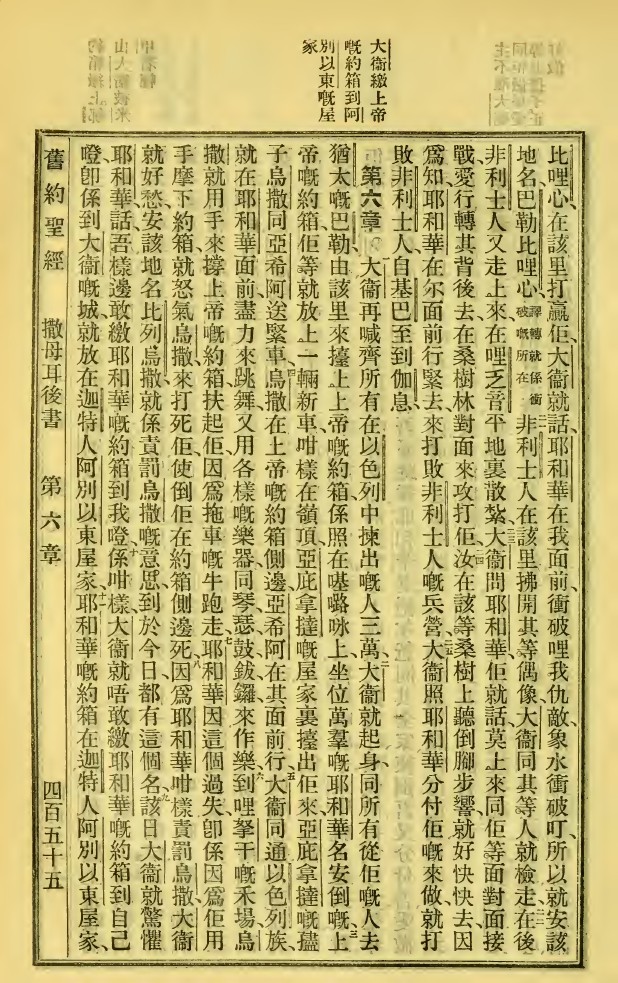 大衞繳上帝
嘅約箱到阿
別以東嘅屋
家
比哩心在該里打贏佢大衞就話耶和華在我面前衝破哩我仇敵象水衝破叮所以就安該
地名巴勒比哩心譯轉就係衝破嘅所在二一非利士人在該里拂開其等偶像大衞同其等人就檢走在後二二
非利士人又走上來在哩乏音平地裏散紮二三大衞問耶和華佢就話莫上來同佢等面對面接
戰愛行轉其背後去在桑樹林對面來攻打佢二四汝在該等桑樹上聽倒腳步響就好快快去因
爲知耶和華在尔面前行緊去來打敗非利士人嘅兵營二五大衞照耶和華分付佢嘅來做就打
敗非利士人自基巴至到伽息
第六章 一大衞再喊齊所有在以色列中揀出嘅人三萬二大衞就起身同所有從佢嘅人去
猶太嘅巴勒由該里來擡上上帝嘅約箱係照在𠼻嚧咏上坐位萬羣嘅耶和華名安倒嘅三上
帝嘅約箱佢等就放上一輛新車咁樣在嶺頂亞庇拿撻嘅屋家裏擡出佢來亞庇拿撻嘅孻
子烏撒同亞希阿送緊車四烏撒在上帝嘅約箱側邊亞希阿在其面前行五大衞同通以色列族
就在耶和華面前盡力來跳舞又用各樣嘅樂器同琴瑟鼓鈸鑼來作樂六到哩拏干嘅禾場烏
撒就用手來撐上帝嘅約箱扶起佢因爲拖車嘅牛跑走七耶和華因這個過失卽係因爲佢用
手摩下約箱就怒氣烏撒來打死佢使倒佢在約箱側邊死八因爲耶和華咁樣責罰烏撒大衞
就好愁安該地名比列烏撒就係責罰烏撒嘅意思到於今日都有這個名九該日大衞就驚懼
耶和華話吾樣邊敢繳耶和華嘅約箱到我噔係咁樣十大衞就唔敢繳耶和華嘅約箱到自己
噔卽係到大衞嘅城就放在迦特人阿別以東屋家十一耶和華嘅約箱在迦特人阿別以東屋家
舊約聖經 撒母耳後書 第六章 四百五十五